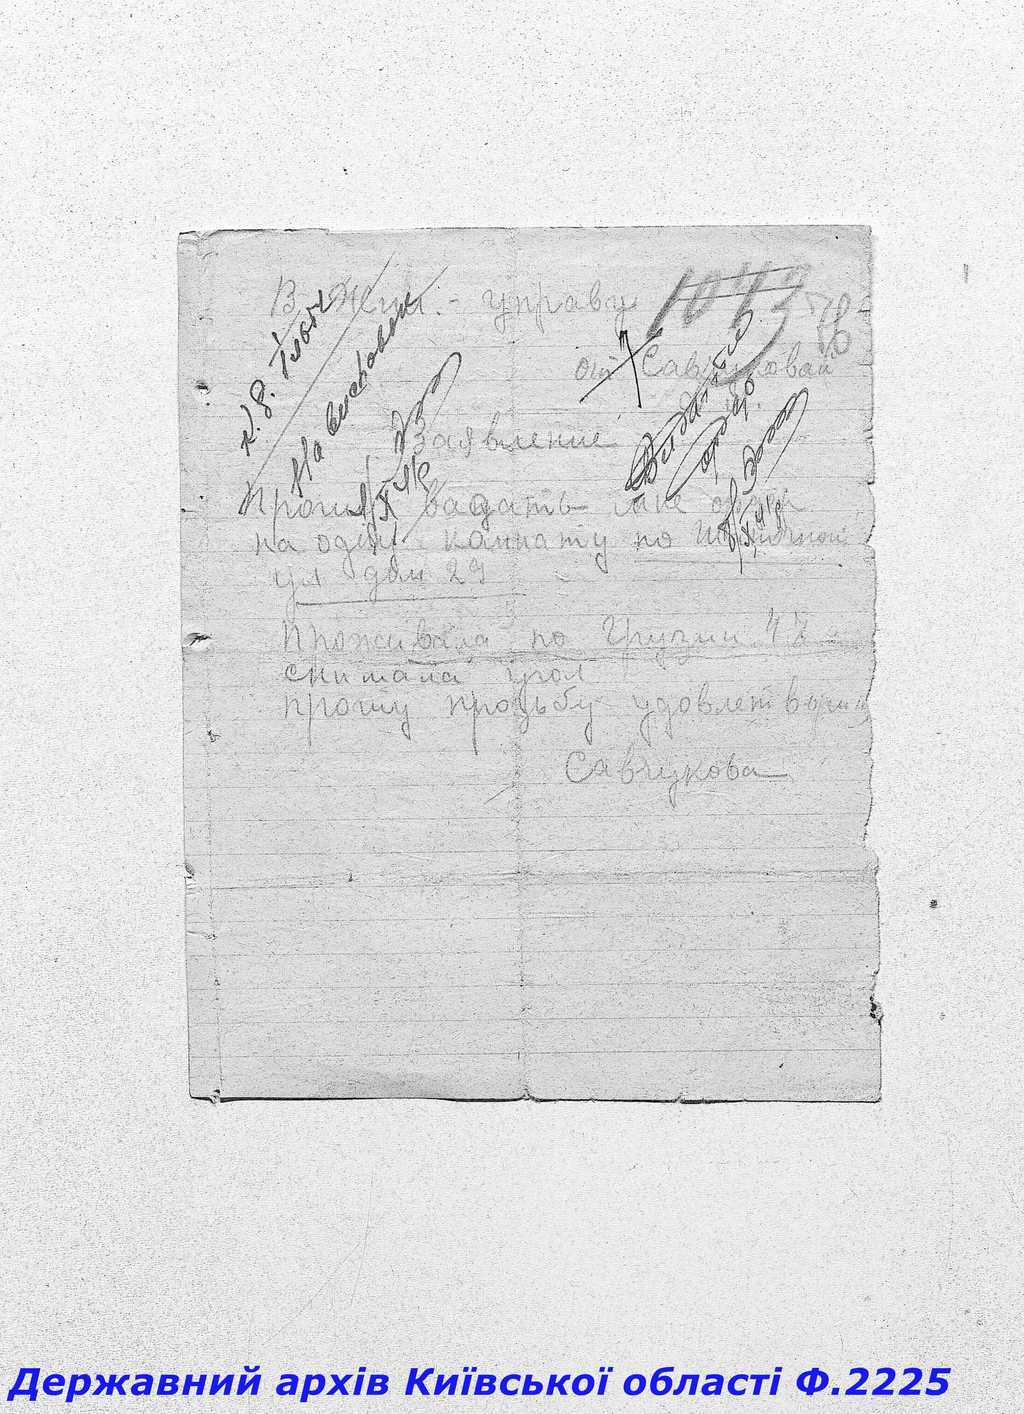 В Жил. - управу
1073
от Савчуковай
Заявление
Прошу вадать мне ордер
на одну камнату по
ул дом 29
Проживала по Грузии 47
снимала угол
прошу прозьбу удовлетвори
Савчукова
На висновок
Видати
ордер
Державний архів Київської області Ф.2225